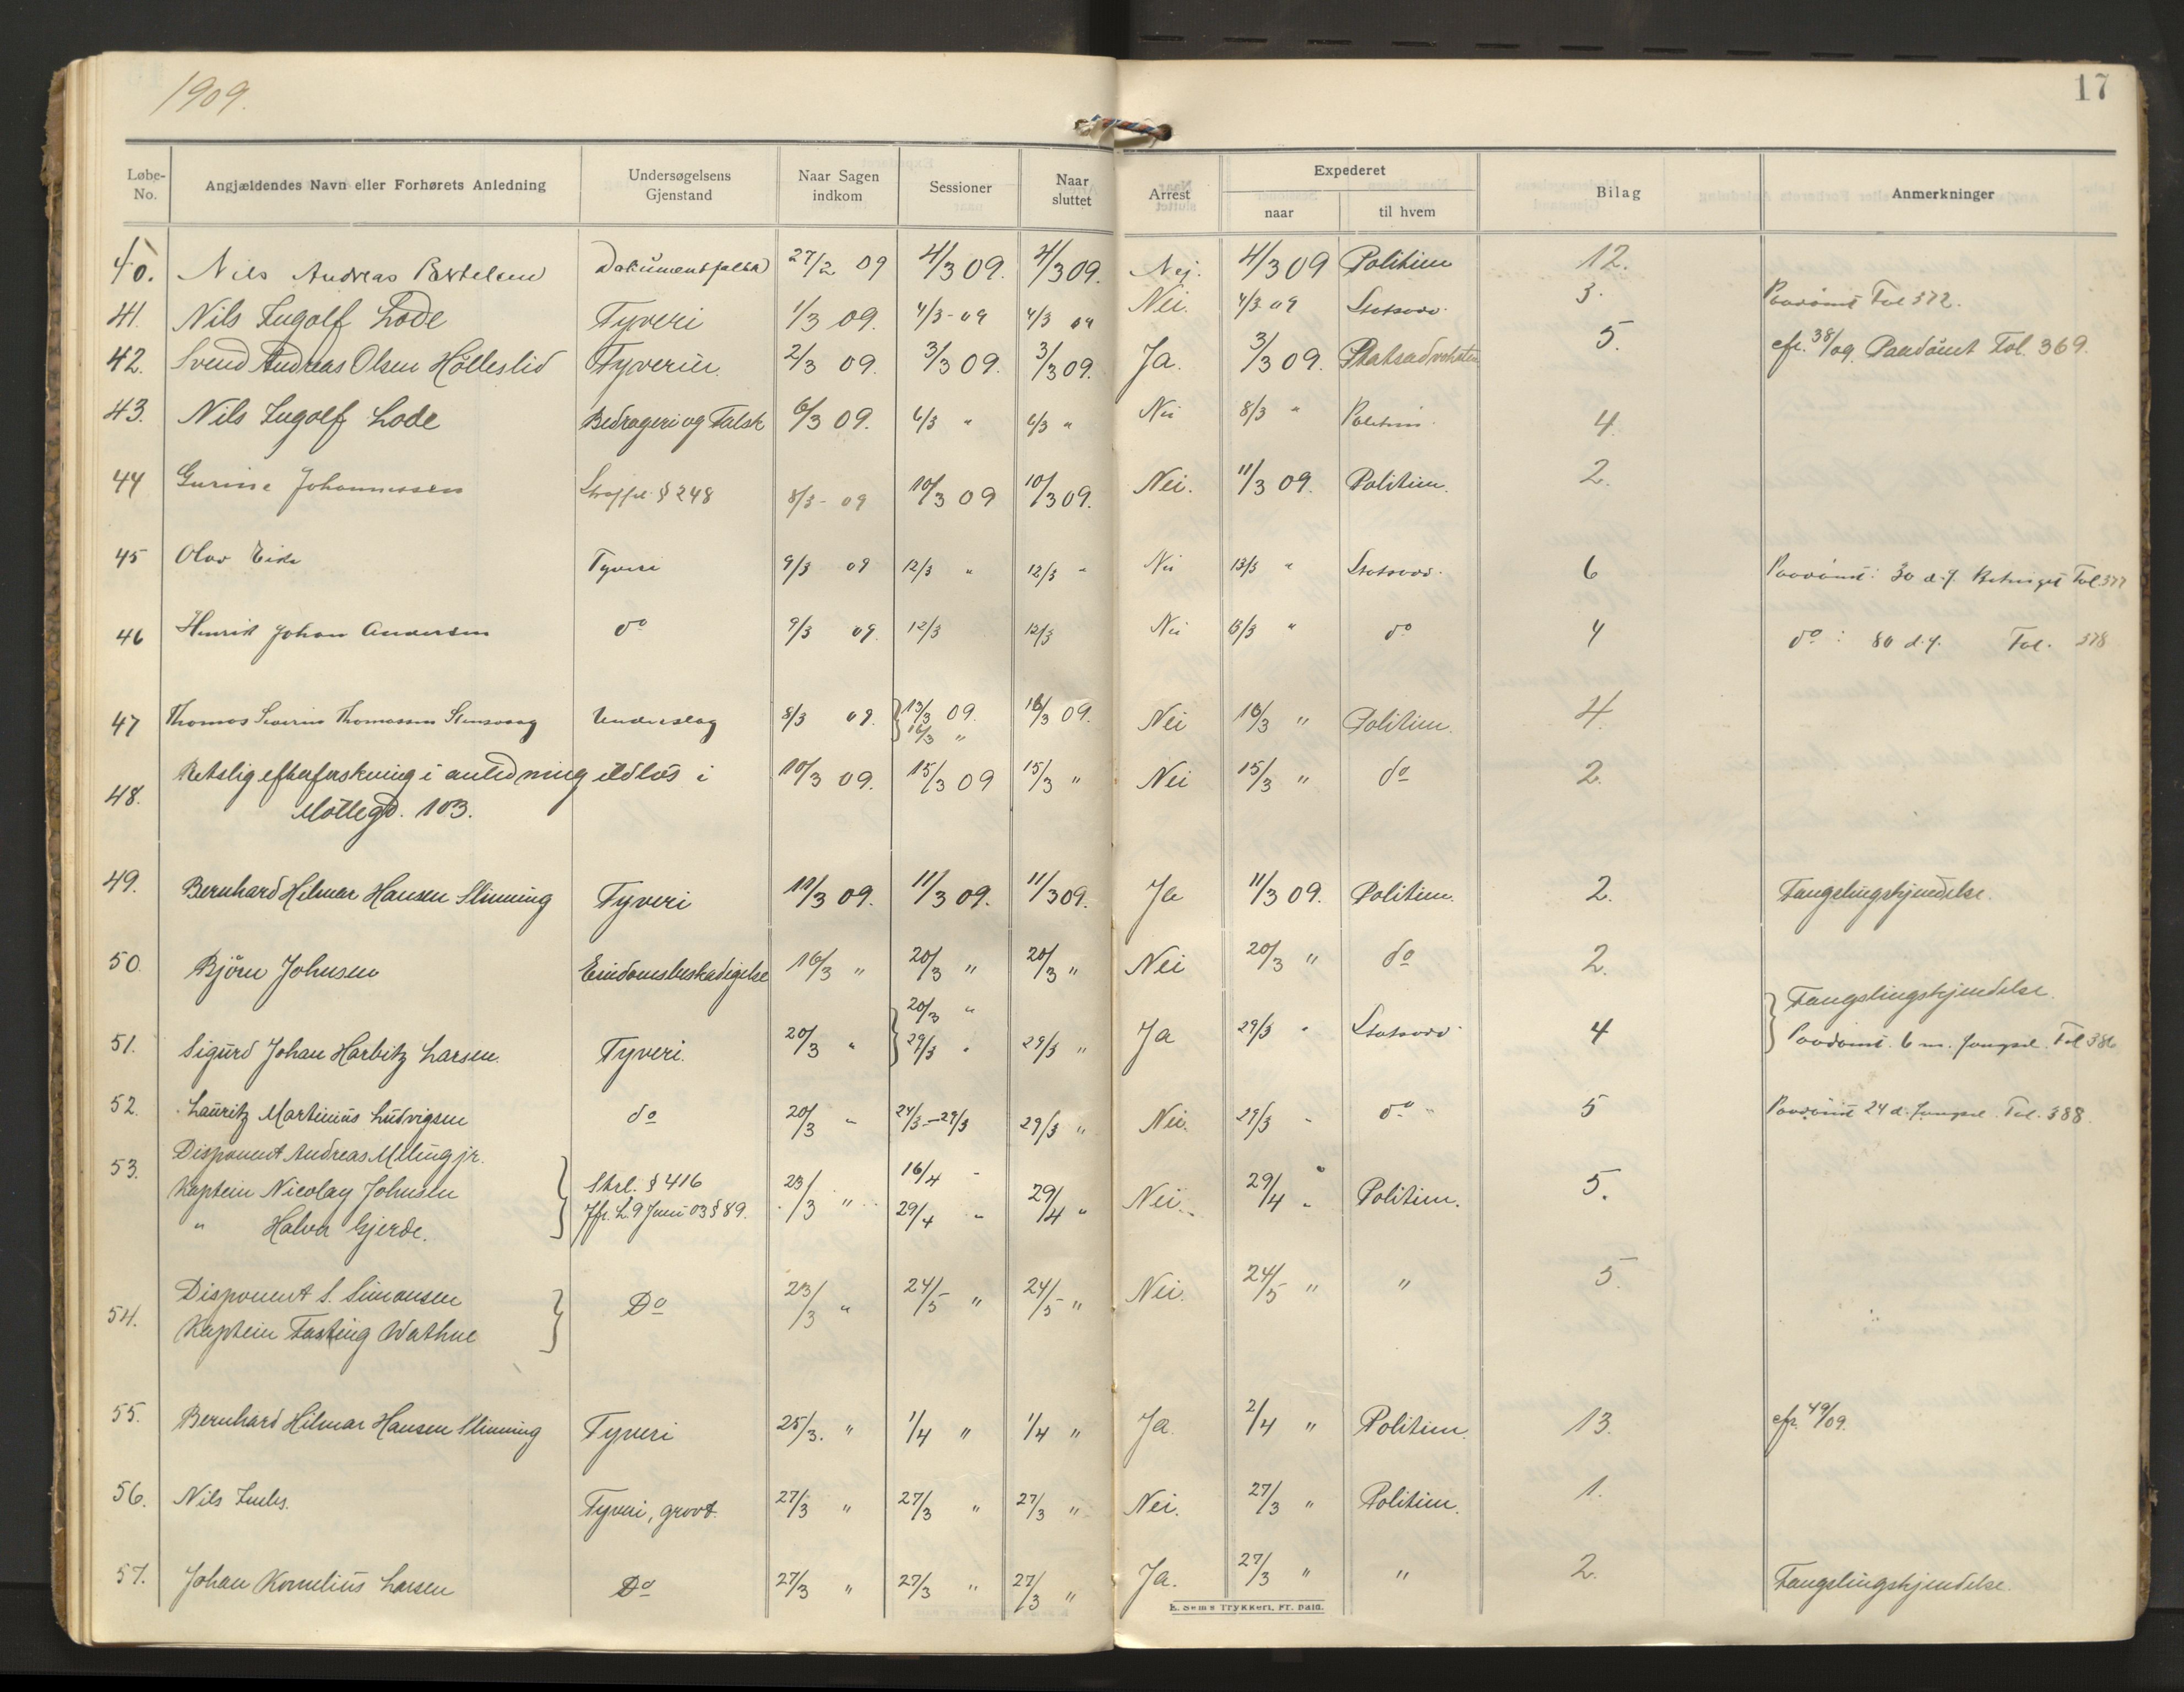 1909.
17
Løbe-No. Angjældendes Navn eller Forhørets Anledning Undersøgelsens Gjenstand Naar Sagen indkom Sessioner Naar sluttet Arrest Expederet naar til hvem Bilag Anmerkninger
40. Nils Andreas Bertelsen Dokumentfalsk 27/2 09 4/3 09. 4/3 09. Nej. 4/3 09 Politiem 12.
41. Nils Ingolf Lode Tyveri 1/3 09. 4/3-09 4/3 09 Nei. 4/3 09 Statsadv. 3. Paadömt Fol 372.
42. Svend Andreas Olsen Hölleslid Tyverier. 2/3 09. 3/3 09. 3/3 09. Ja. 3/3 09. Statsadvokaten 5. cfr. 38/09. Paadömt Fol. 369.
43. Nils Ingolf Lode Bedrageri og Falsk 6/3 09. 6/3 " 6/3 " Nei 8/3 " Politiem. 4.
44 Gurine Johannessen Straffel. § 248 8/3-09 10/3 09 10/3 09. Nei. 11/3 09. Politiem. 2.
45 Olav Eide Tyveri 9/3 09 12/3 " 12/3 " Nei 13/3 " Statsadv. 6 Paadömt: 30 d. f. Betinget Fol 377
46 Henrik Johan Andersen do 9/3 09. 12/3 12/3 Nei 13/3 " do 4 do: 80 d. f. Fol. 378
47 Thomas Severin Thomassen Stensvaag Underslag 8/3 09. 13/3 09. 16/3 09. Nei 16/3 " Politiem. 4.
16/3 "
48. Retslig efterforskning i anledning ildlös i 10/3 09. 15/3 09 15/3 " Nei 15/3 " do 2.
Möllegd. 103.
49. Bernhard Hilmar Hansen Slinning Tyveri 11/3 09. 11/3 09. 11/3 09. Ja 11/3 09. Politiem. 2. Fængslingskjendelse.
50. Björn Johnsen Eiendomsbeskadigelse 16/3 " 20/3 " 20/3 " Nei 20/3 " do 2.
20/3 " Fængslingskjendelse.
51. Sigurd Johan Harbitz Larsen. Tyveri. 20/3 " 29/3 " 29/3 " Ja 29/3 " Statsadv. 4 Paadömt. 6 m. fængsel. Fol 386
52. Lauritz Martinius Ludvigsen do 20/3 " 24/3-29/3 29/3 " Nei. 29/3 " do " 5 Paadömt 24 d. fængsel. Fol. 388.
Disponent Andreas Meling jr.
53. Kaptein Nicolay Johnsen Strl. § 416 23/3 " 16/4 " 29/4 " Nei. 29/4 " Politiem. 5.
" Halvor Gjerde. Jfr. L. 9 Juni 03 § 89. 29/4 "
54. Disponent S. Simonsen Do 23/3 " 24/5 " 24/5 " Nei. 24/5 " " 5.
Kaptein Fasting Wathne
55. Bernhard Hilmar Hansen Slinning Tyveri 25/3. " 1/4 " 1/4 " Ja. 2/4 " Politiem. 13. cfr. 49/09.
56. Nils Tyveri, grovt. 27/3 " 27/3 " 27/3 " Nei. 27/3 " Politiem. 1.
57. Johan Kornelius Larsen Do 27/3 " 27/3 " 27/3 " Ja. 27/3 " " 2. Fængslingskjendelse.
E. Sems Trykkeri, Fr. hald.